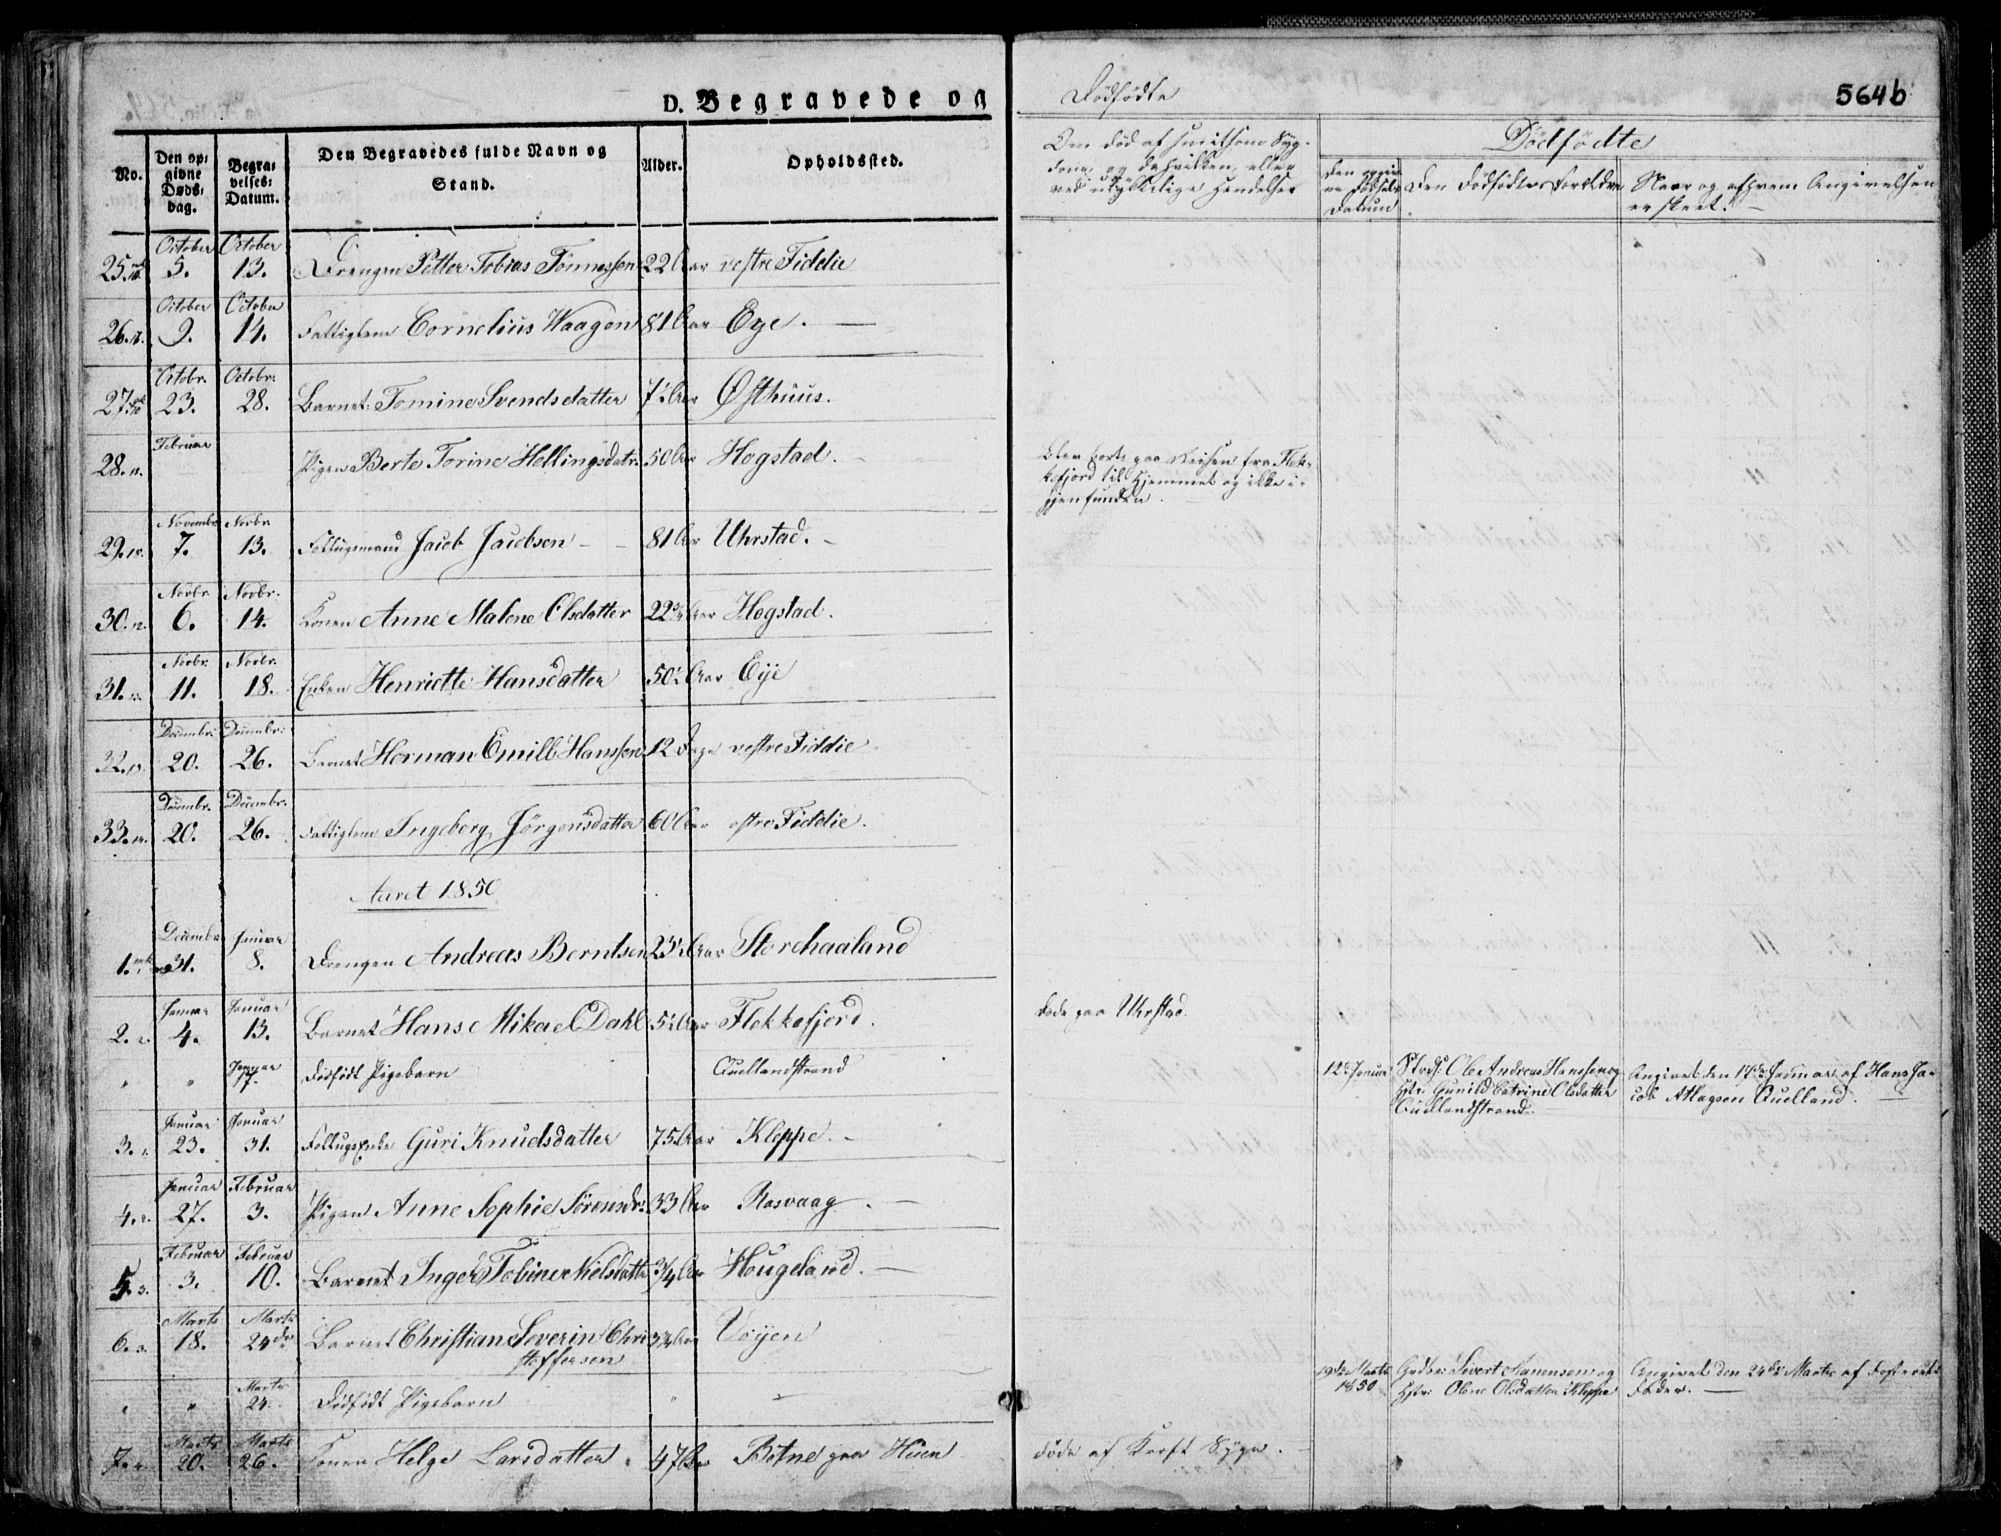 D. Begravede og
Dödfödte
564b
No.
Den op-
givne
Døds-
dag.
Begra-
velses-
Datum.
Den Begravedes fulde Navn og
Stand.
Alder.
Opholdssted.
Om död af smitsom Syg-
dom, og da hvilken, eller
ved ulykkelige Hendelser
Dödfödte
Den opgiv-
ne Födsels
Datum
Den Dödfödtes Forældre
Naar og af hvem Angivelsen
er skeet.
October October
25. 5. 13. Drengen Petter Tobias Tönnessen 22 Aar vestre Fiddie
October October
26. 9. 14. Fattiglem Cornelius Waagen 81 Aar Eye.
Octobr. Octobr.
27. 23. 28. Barnet Tomine Svendsdatter 7 Aar Østhuus.
Februar
28. Pigen Berte Torine Hellingsdatr. 50 Aar Hogstad.
Blev borte paa Reisen fra Flek-
kefjord til Hjemmet og ikke i-
gjenfunden.
Novembr. Novbr.
29. 7. 13. Follugsmand Jacob Jacobsen 81 Aar Uhrstad.
Novbr. Novbr.
30. 6. 14. Konen Anne Malene Olsdatter 22 Aar Hogstad.
Novbr. Novbr.
31. 11. 18. Enken Henriette Hansdatter 50 Aar Eye
Decembr. Decembr.
32. 20. 26. Barnet Herman Emill Hanssen 12 Dage vestre Fiddie
Decembr. Decembr.
33. 20. 26. Fattiglem Ingeborg Jörgensdatter 60 Aar østre Fiddie.
Aaret 1850
Decembr Januar
1. 31. 8. Drengen Andreas Berntsen 23 Aar Storehaaland
Januar Januar
2. 4. 13. Barnet Hans Mikael Dahl 5 Aar Flekkefjord. Døde paa Uhrstad.
Januar
" " 17. Dödfödt Pigebarn Quellandstrand
12te Januar Strds. Ole Andreas Hanssen og
Hstr. Gunild Catrine Olsdatter
Quellandstrand.
Angivet den 17de Januar af Hans Ja-
cob Atlagsen Quelland.
Januar Januar
3. 23. 31. Follugs Enke Guri Knudsdatter 75 Aar Kleppe.
Januar Februar
4. 27. 3. Pigen Anne Sophie Sörensdr. 33 Aar Rasvaag.
Februar Februar
5. 3. 10. Barnet Inger Tobine Nielsdatter 3/4 Aar Hougeland.
Marts Marts
6. 18. 24de Barnet Christian Severin Chri-
stoffersen
Aar Voijen
Marts
" " 24. Dödfödt Pigebarn " "
19de Marts
1850
Gvdbr. Sivert Hanensen og
Hstr. Oline Olsdatter Kleppe
Angivet den 24de Marts af
Fader.
Marts Marts
7. 20. 26. Konen Helge Larsdatter 47 Aar Botne paa Hüen døde af Kræft Syge.